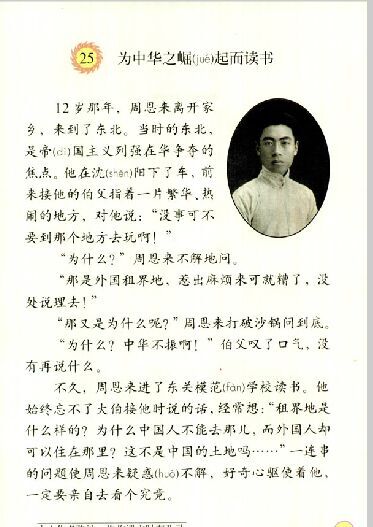 25 为中华之崛(jué)起而读书
12岁那年，周恩来离开家
乡，来到了东北。当时的东北，
是帝(dì)国主义列强在华争夺的
焦点。他在沈(shěn)阳下了车，前
来接他的伯父指着一片繁华、热
闹的地方，对他说：“没事可不
要到那个地方去玩啊！”
“为什么？”周恩来不解地问。
“那是外国租界地，惹出麻烦来可就糟了，没
处说理去！”
“那又是为什么呢？”周恩来打破沙锅问到底。
“为什么？中华不振啊！”伯父叹了口气，没
有再说什么。
不久，周恩来进了东关模范(fàn)学校读书。他
始终忘不了大伯接他时说的话，经常想：“租界地是
什么样的？为什么中国人不能去那儿，而外国人却
可以住在那里？这不是中国的土地吗……”一连串
的问题使周恩来疑惑(huò)不解，好奇心驱使着他，
一定要亲自去看个究竟。